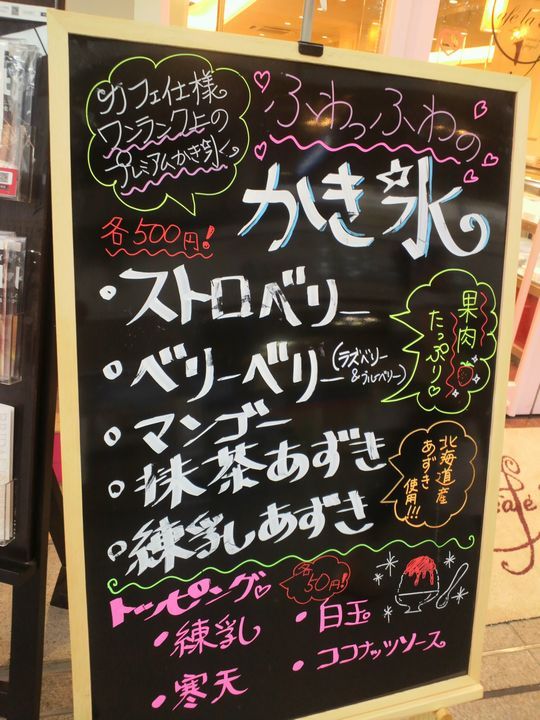 カフェ仕様
ワンランク上の
プレミアムかき氷
ふわっふわの
かき氷
各500円!
・ストロベリー
・ベリーベリー(ラズベリー&ブルーベリー)
果肉
たっぷり♡
・マンゴー
・抹茶あずき
北海道産
あずき
使用!!!
・練乳あずき
トッピング
各50円!
・練乳
・白玉
・寒天
・ココナッツソース